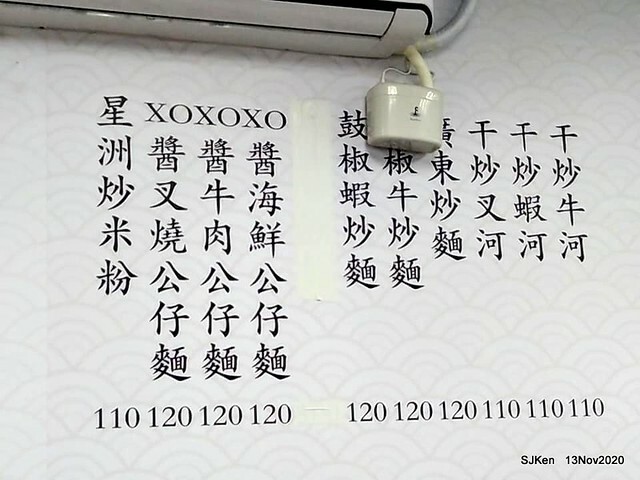 干炒牛河
干炒蝦河
干炒叉河
廣東炒麵
椒牛炒麵
鼓椒蝦炒麵
XO醬海鮮公仔麵
XO醬牛肉公仔麵
XO醬叉燒公仔麵
星洲炒米粉
110 120 120 120 120 120 120 110 110 110
SJKen 13Nov2020